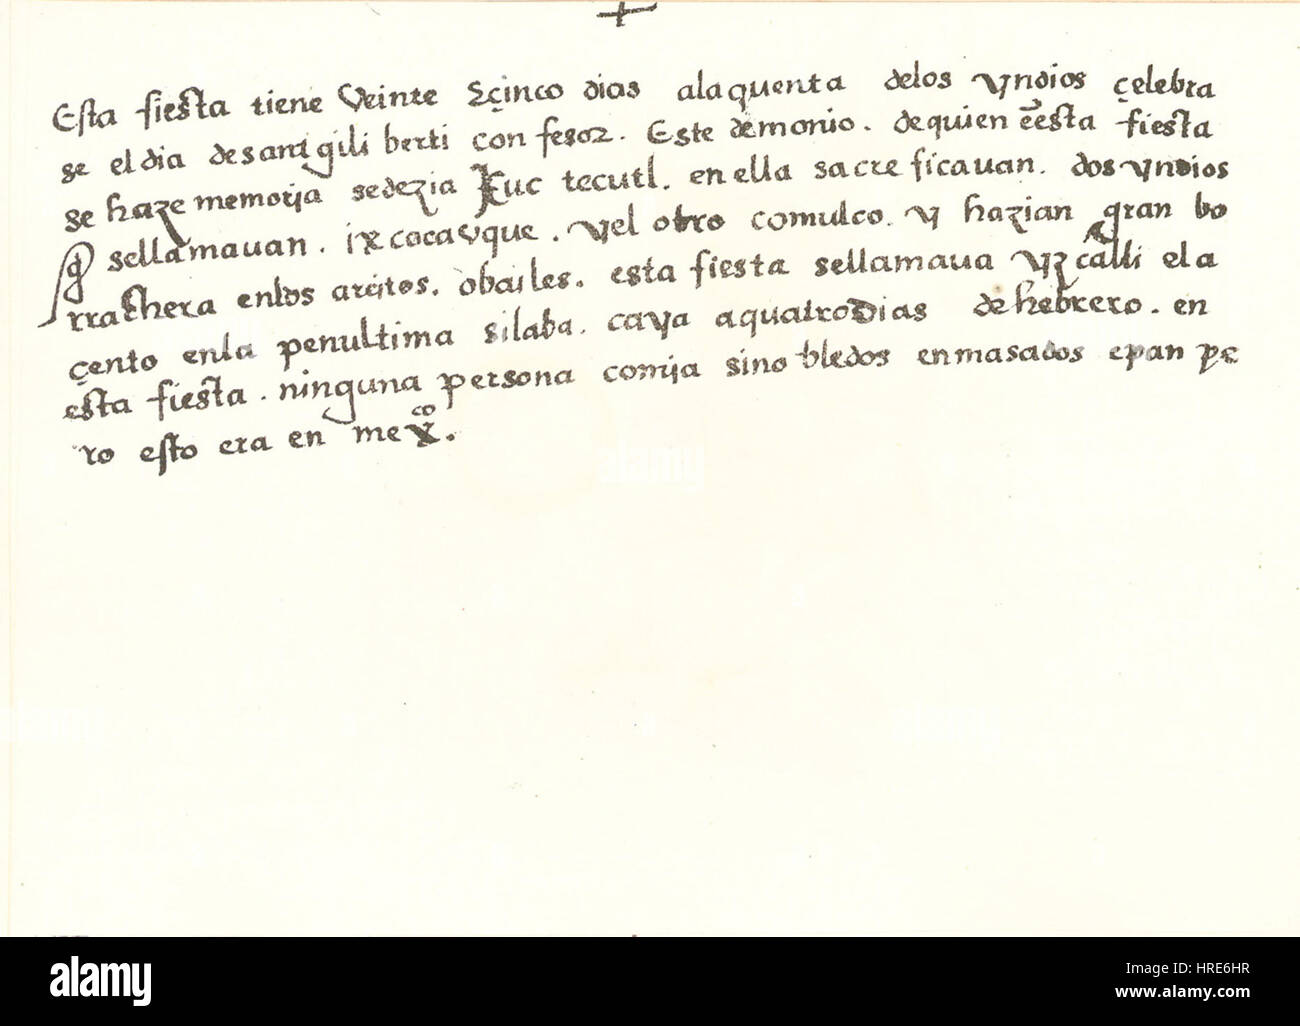 +
Esta fiesta tiene Veinte Sçinco dias ala quenta delos yndios çelebra
se el dia de sant gili berti confesor. Este demonio. de quien eesta fiesta
se haze memoria sedezia Xuc tecutl. en ella sacre ficauan. dos yndios
q sellamauan. ixcocauque. yel otro comulco. y hazian gran bo
rrachera enlos areitos. o bailes. esta fiesta sellamaua yzcalli el a
çento enla penultima silaba. caya aquatro Dias de hebrero. en
esta fiesta. ninguna persona comia sino bledos enmasados epan pe
ro esto era en mexco.
alamy
Image ID: HRE6HR
www.alamy.com